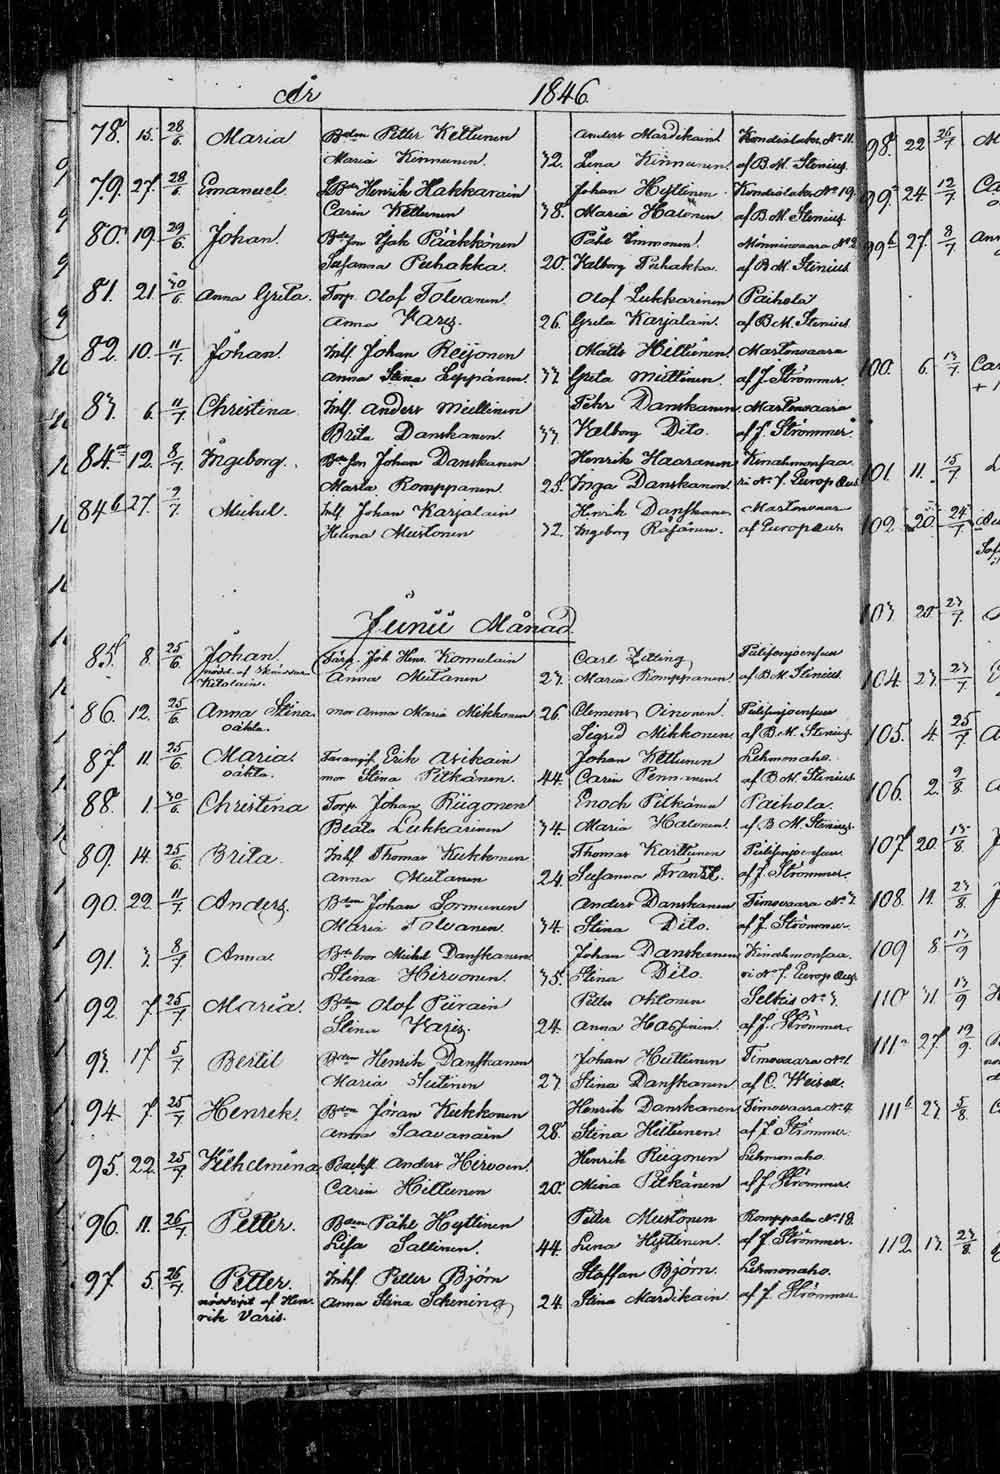 År 1846
78. 15. 28/6. Maria Bdem Petter Kettunen Anders Mardikain Kondiolaks No 11.
Maria Kinnunen. 32. Lena Kinnunen. af B. M. Stenius
79. 27. 28/6. Emanuel Henrik Hakkarain Johan Hyttinen Kondiolaks No 19.
Carin Kettunen 38. Maria Halonen af B. M. Stenius
80. 19. 29/6. Johan. Pääkkönen Påhl Immonen. Mönninvaara No 2
Susanna Puhakka. 20. Valborg Puhakka. af B. M. Stenius
81. 21. 30/6. Anna Greta. Torp. Olof Tolvanen. Olof Lukkarinen Paihola
Anna Varis. 26. Greta Karjalain. af B. M. Stenius
82. 10. 11/7. Johan. Inhs. Johan Reijonen Matts Hiltunen. Martonvaara
Anna Stina Leppänen. 33. Greta Miettinen. af J. Strömmer.
83. 6. 11/7. Christina Inhs. Anders Miettinen Pehr Danskanen. Martonvaara
Brita Danskanen. 33. Valborg Dito. af J. Strömmer.
84a 12. 8/7. Ingeborg. Johan Danskanen Henrik Haaranen Kinahmonsaa-
Marta Romppanen. 25. Inga Danskanen. ri No 7. Europæus
84b 27. 9/7. Michel. Inhs. Johan Karjalain Henrik Danskanen Martonvaar
Helena Mustonen 32. Ingeborg Räsänen. af Europæus
Junii Månad
85. 8. 25/6. Johan. Joh. Henr. Komulain Carl Zitting
nödd. af
Anna Mutanen 23. Maria Romppanen. af B. M. Stenius
86. 12. 25/6. Anna Stina. mor Anna Maria Mikkonen 26. Clemens Oinonen.
oäkta. Sigrid Mikkonen. af B. M. Stenius
87. 11. 25/6. Maria. Erik Asikain Johan Kettunen Lehmonaho.
oäkta. mor Stina Pitkänen. 44. Carin Pennanen. af B. M. Stenius
88. 1. 30/6. Christina Torp. Johan Riigonen Enoch Pitkänen Paihola.
Beata Lukkarinen 34. Maria Halonen. af B. M. Stenius.
89. 14. 25/6. Brita. Inhs. Thomas Kukkonen Thomas Karttunen
Anna Mutanen 24. Susanna af J. Strömmer.
90. 22. 11/7. Anders. Bdem Johan Sormunen Anders Danskanen Timovaara No 3
Maria Tolvanen. 34. Stina Dito. af J. Strömmer.
91. 3. 8/7. Anna. Michel Danskanen Johan Danskanen Kinahmonsaa-
Stina Hirvonen. 35. Stina Dito. ri No 7. Europæus
92. 7. 25/7 Maria. Bdem Olof Piirain Petter Ahlonen Selkis No 3.
Stina Varis. 24. Anna Hassinen. af J. Strömmer.
93. 17 5/7. Bertil Bdem Henrik Danskanen Johan Huttunen Timovaara No 1.
Maria Sutinen 23 Stina Danskanen af C. Weisell.
94. 7. 25/7. Henrik. Bdem Jöran Kukkonen Henrik Danskanen Timovaara No 4
Anna Saavanain 28. Stina Hiltunen. af J. Strömmer.
95. 22. 25/7 Vilhelmina Anders Hirvonen. Henrik Riigonen Lehmonaho.
Carin Hiltunen 20. Mina Pitkänen af J. Strömmer.
96. 11. 26/7. Petter. Bdem Påhl Hyttinen Petter Mustonen Romppala No 18.
Lisa Sallinen. 44. Lena Hyttinen. af J. Strömmer.
97. 5. 26/7. Petter. Inhs. Petter Björn Staffan Björn. Lehmonaho.
nöddöpt af Hen- Anna Stina Schening 24. Stina Mardikain af J. Strömmer
rik Varis.
98. 22 26/7
99a 24. 12/7.
99b 27. 8/7
100. 6. 13/7.
101. 11. 15/7
102. 20. 24/7.
103. 20 23/7.
104. 23. 23/7
105. 4. 25/7
106. 2. 9/8.
107 20. 13/8.
108. 14. 23/8.
109 8 13/9
110 31. 13/9
111a 27 19/9.
111b 23. 5/8
112. 13. 23/8.